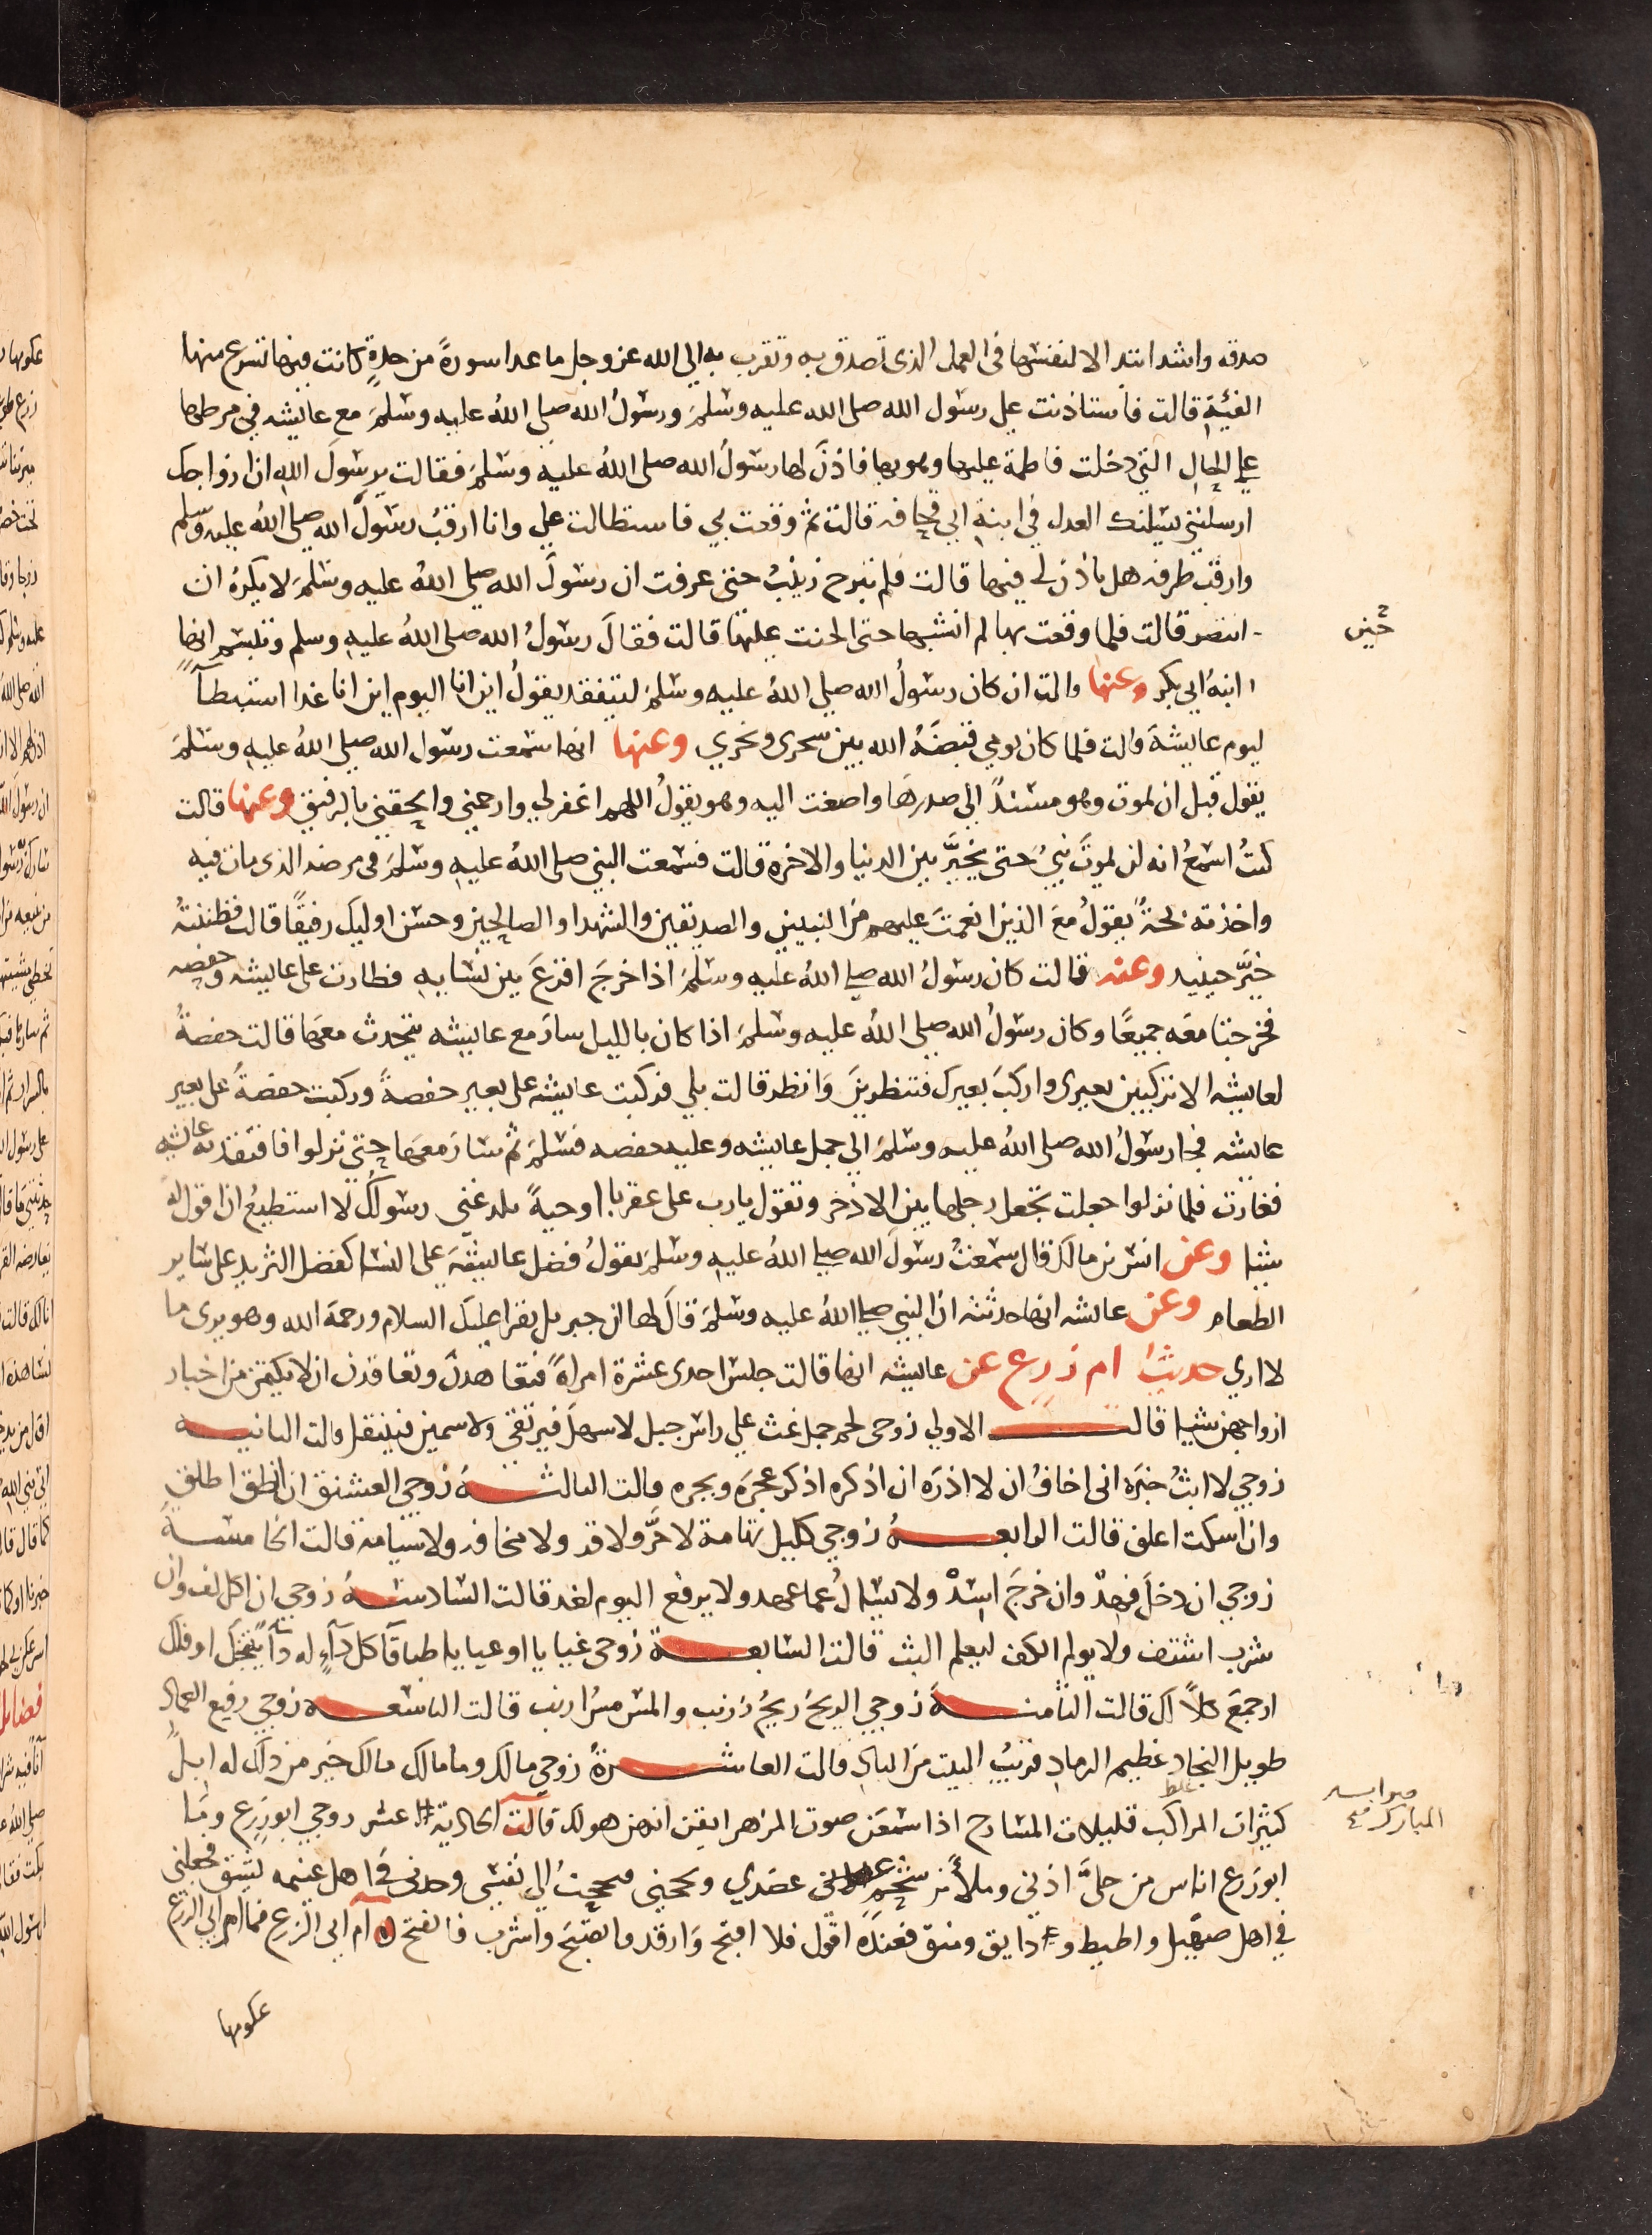 صدقة واشد ابتدالا لنفسها في العمل الذى تصدق به وتقرب به الي الله عز وجل ما عدا سورةً من حدةٍ كانت فيها تسرع منها
الفيئة قالت فاستاذنت على رسول الله صلى الله عليه وسلم ورسولُ الله صلى اللهُ عليه وسلم مع عايشه في مرطها
على الحال التي دخلت فاطمة عليها وهو بها فاذن لها رسولُ الله صلى اللهُ عليه وسلم فقالت يرسولَ الله ان ازواجك
ارسلنني يسلنك العدل في ابنة ابي قحافه قالت ثم وقعت بي فاستطالت علي وانا ارقبُ رسولَ الله صلي اللهُ عليه وسلم
وارقب طرفه هل ياذن لي فيها قالت فلم تبرح زينبُ حتى عرفت ان رسولَ الله صلى اللهُ عليه وسلم لا يكرهُ ان
انتصر قالت فلما وقعت بها لم انشبها حتى الحنت عليها قالت فقالَ رسولُ الله صلى اللهُ عليه وسلم وتبسم انها
حين
ابنة ابي بكر وعنها قالت ان كان رسولُ الله صلي اللهُ عليه وسلم ليتفقد يقولُ اين انا اليوم اين انا غدا استبطآ
ليوم عايشة قالت فلما كان يومي قبضهُ الله بين سحرى ونحري وعنها انها سمعت رسول الله صلي اللهُ عليه وسلمَ
يقول قبل ان يموت وهو مسندٌ الي صدرها واصغت اليه وهو يقولُ اللهم اغفر لي وارحمني والحقني بالرفيق وعنها قالت
كنتُ اسمعُ انه لن يموتَ نبيُ حتى يخيَّر بين الدنيا والاخرة قالت فسمعت النبي صلى اللهُ عليه وسلمَ في مرضه الذى مات فيه
واخذته بحةُ يقولُ معَ الذين انعمتَ عليهم من النبيين والصديقين والشهدا والصالحين وحسن اوليك رفيقًا قالت فظننتهُ
خيَّر حينيذ وعنه قالت كان رسولُ الله صلي اللهُ عليه وسلمَ اذا خرجَ اقرعَ بين نسايه فطارت على عايشه وحفصه
فخرجتا معه جميعًا وكان رسولُ الله صلي اللهُ عليه وسلمَ اذا كان بالليل سارَ مع عايشه يتحدث معها قالت حفصةُ
لعايشه الا تركبين بعيرى واركبَ بعيرك فتنظرينَ وَانظر قالت بلي فركبت عايشه على بعير حفصةَ وركبت حفصةُ على بعير
عايشه فجا رسولُ الله صلى اللهُ عليه وسلمَ الي جمل عايشه وعليه حفصه فسلمَ ثم سارَ معها حتى نزلوا فافتقدته عايشه
فغارت فلما نزلوا جعلت تجعل رجلها بين الاذخر وتقول يارب على عقربا اوحيةً تلدغني رسولُكَ لا استطيعُ ان اقول له
شيا وعن انس بن مالك قال سمعتُ رسولَ الله صلي اللهُ عليه وسلمَ يقولُ فضل عايشهَ على النسا كفضل الثريد على ساير
الطعام وعن عايشه انها حدثته ان النبي صلي اللهُ عليه وسلمَ قالَ لها ان جبريل يقرا عليك السلام ورحمة الله وهو يرى ما
لا ارى حديث ام زرع عن عايشه انها قالت جلس احدى عشرة امراةً فتعاهدن وتعاقدن ان لا يكتمن من اخبار
ازواجهن شيا قالت الاولي زوجى لحم جمل غث علي راس جبل لا سهل فيرتقى ولا سمين فينتقل قالت الثانيه
زوجي لا ابثُ خبَره انى اخافُ ان لا اذرَه ان اذكره اذكر عجرَه وبجره قالت الثالثه زوجي العشنق ان انطق اطلق
وان اسكت اعلق قالت الرابعهُ زوجي كليل تهامة لا حرَّ ولا قر ولا مخافه ولا سيامة قالت الخامسةُ
زوجي ان دخلَ فهدٌ وان خرجَ اسدٌ ولا يسالُ عما عهد ولا يرفع اليوم لغد قالت السادسهُ زوجي ان اكل لف وان
شرب اشتف ولا يولج الكف ليعلم البث قالت السابعة زوجى غيايا او عيايا طباقآ كل دآءٍ له دآءٌ شجك او فلك
اوجمعَ كلاً لك قالت الثامنهَ زوجي الريحُ ريحُ زرنب والمس مسُ ارنب قالت التاسعه زوجي رفيع العماد
طويل النجاد عظيم الرماد قريبُ البيت من الناد قالت العاشرةُ زوجى مالك وما مالك مالك خير من ذلك له ابلٌ
كثيرات المراكب قليلات المسارح اذا سمعنَ صوت المزهر ايقن انهن هوالك قالت الحادية عشر زوجي ابو زرع وما
غلط
صوابه
المبارك
ابو زرع اناس من حليَّ اذني وملأ من شحم عضدي وبجحنى فبجحتُ الي نفسى وجدنى في اهل غنيمه بشق فجعلنى
في اهل صهيل واطيط ودايق ومنق فعندَه اقول فلا اقبح وَارقد فاتصبح واشرب فاتقمح ام ابى الزرع فما ام ابي الزرع
عكومها